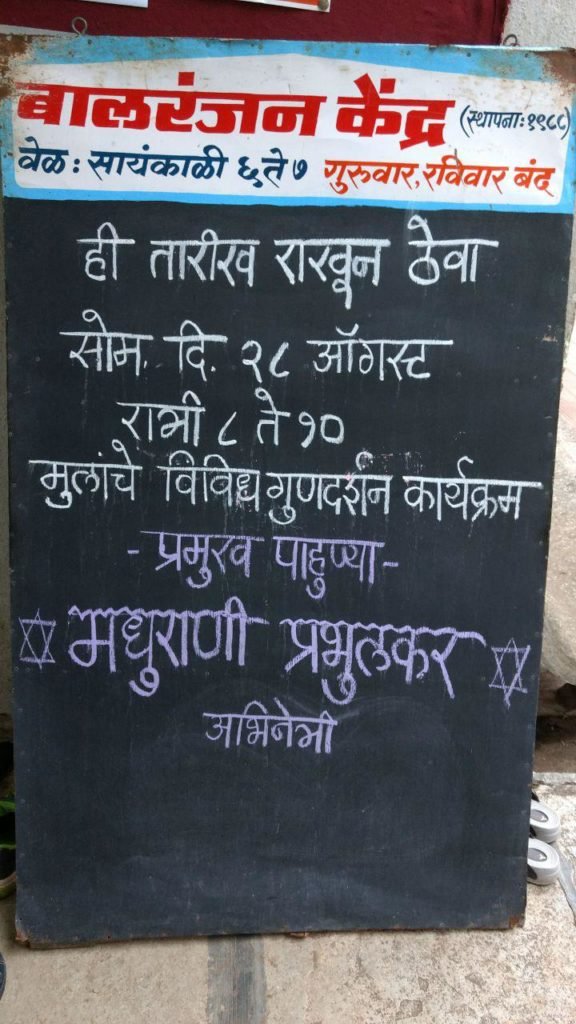 बालरंजन केंद्र (स्थापना: १९८८)
वेळ: सायंकाळी ६ ते ७ गुरुवार, रविवार बंद
ही तारीख राखून ठेवा
सोम. दि. २८ ऑगस्ट
रात्री ८ ते १०
मुलांचे विविध गुणदर्शन कार्यक्रम
- प्रमुख पाहुण्या -
मधुराणी प्रभुलकर
अभिनेत्री